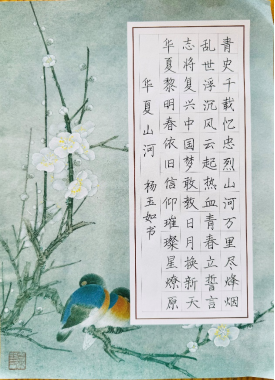 青史千载忆忠烈山河万里尽烽烟
乱世浮沉风云起热血青春立誓言
志将复兴中国梦敢教日月换新天
华夏黎明春依旧信仰璀璨星燎原
华夏山河 杨玉如书